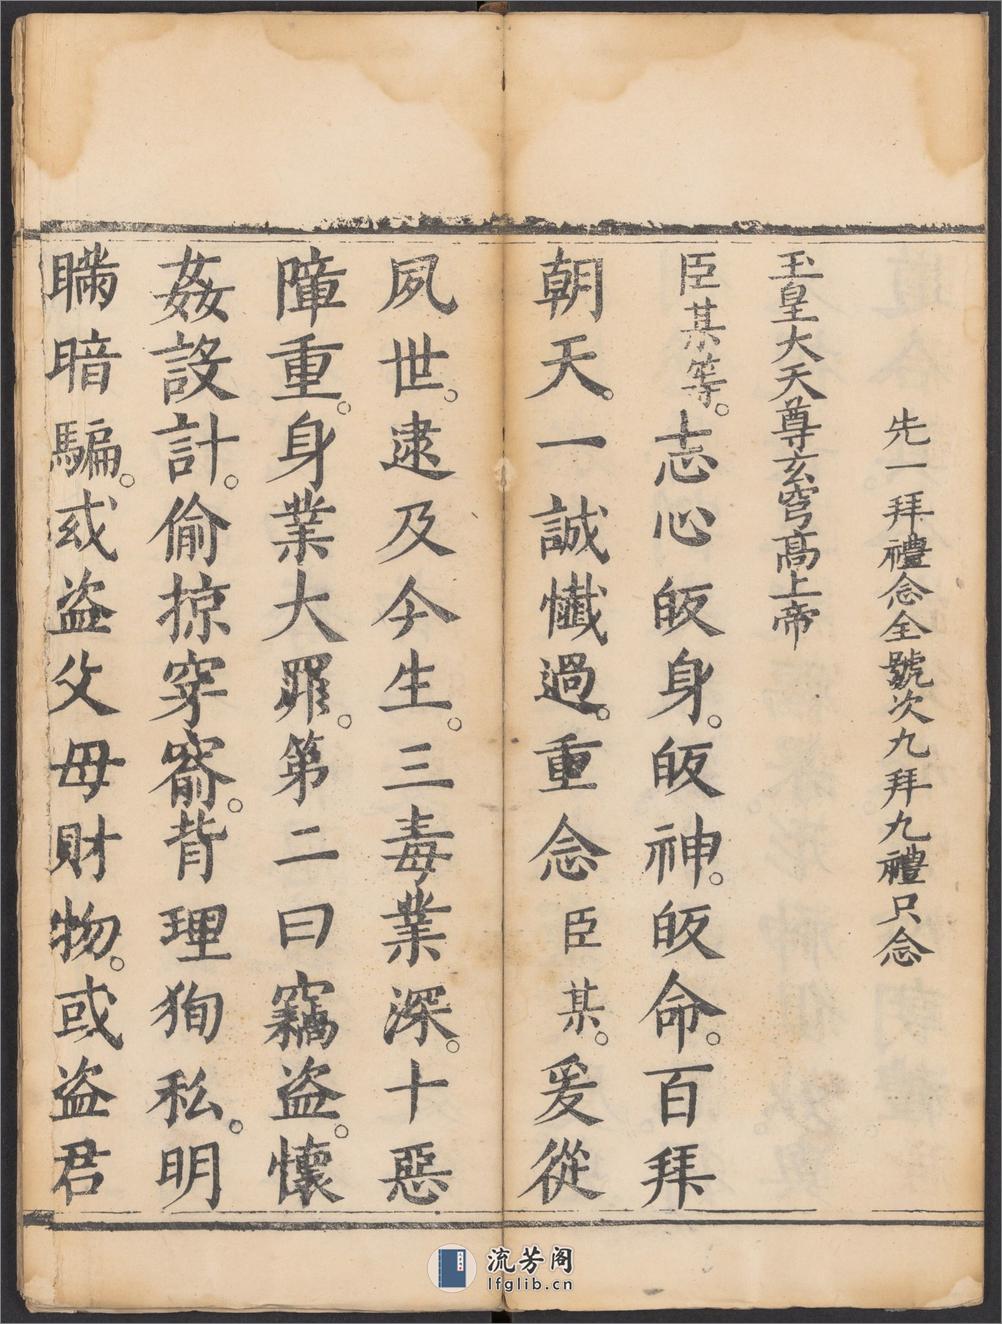 先一拜禮念全號次九拜九禮只念
玉皇大天尊玄穹高上帝
臣某等。志心皈身。皈神。皈命。百拜
朝天。一誠懺過。重念臣某。爰從
夙世。逮及今生。三毒業深。十惡
障重。身業大罪。第二曰竊盜。懷
姦設計。偷掠穿窬。背理狥私。明
瞞暗騙。或盜父母財物。或盜君
流芳阁
lfglib.cn